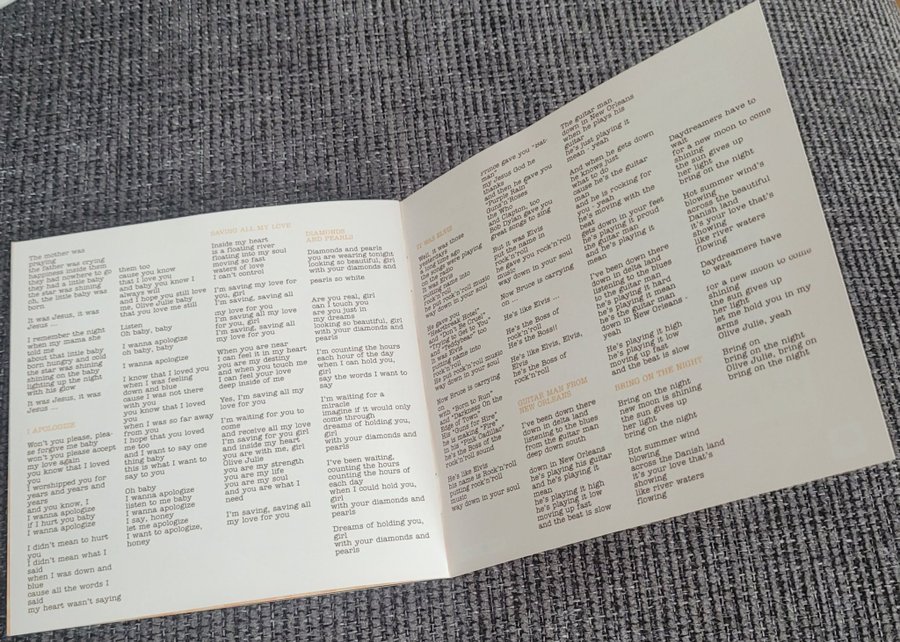 The mother was
praying
the father was crying
happiness inside them
they had nowhere to go
they had a little baby
the star was shining
oh, the little baby was
born
It was Jesus, it was
Jesus ...
I remember the night
when my mama she
told me
about that little baby
born hungry and cold
the star was shining
shining on the baby
lighting up the night
with his glow
It was Jesus, it was
Jesus ...
I APOLOGIZE
Won't you please, plea-
se forgive me baby
won't you please accept
my love again
you know that I loved
you
I worshipped you for
years and years and
years
and you know, I
wanna apologize
if I hurt you baby
I wanna apologize
I didn't mean to hurt
you
I didn't mean what I
said
when I was down and
blue
cause all the words I
said
my heart wasn't saying
them too
cause you know
that I love you
and baby you know I
always will
and I hope you still love
me, Olive Julie baby
that you love me still
Listen
Oh baby, baby
I wanna apologize
oh baby, baby
I wanna apologize
I know that I loved you
when I was feeling
down and blue
cause I was not there
with you
you know that I loved
you
when I was so far away
from you
I hope that you loved
me too
and I want to say one
thing baby
this is what I want to
say to you
Oh baby
I wanna apologize
listen to me baby
I wanna apologize
I say, honey
let me apologize
I want to apologize,
honey
SAVING ALL MY LOVE
Inside my heart
is a floating river
floating into my soul
moving so fast
waters of love
I can't control
I'm saving my love for
you, girl
I'm saving, saving all
my love for you
I'm saving all my love
for you, girl
I'm saving, saving all
my love for you
When you are near
I can feel it in my heart
you are my destiny
and when you touch me
I can feel your love
deep inside of me
Yes, I'm saving all my
love for you
I'm waiting for you to
come
and receive all my love
I'm saving for you girl
and inside my heart
you are with me, girl
Olive Julie
you are my strength
you are my life
you are my soul
and you are what I
need
I'm saving, saving all
my love for you
DIAMONDS
AND PEARLS
Diamonds and pearls
you are wearing tonight
looking so beautiful, girl
with your diamonds and
pearls so white
Are you real, girl
can I touch you
are you just in
my dreams
looking so beautiful, girl
with your diamonds and
pearls
I'm counting the hours
each hour of the day
when I can hold you,
girl
say the words I want to
say
I'm waiting for a
miracle
imagine if it would only
come through
dreams of holding you,
girl
with your diamonds and
pearls
I've been waiting,
counting the hours
counting the hours of
each day
when I could hold you,
girl
with your diamonds and
pearls
Dreams of holding you,
girl
with your diamonds and
pearls
IT WAS ELVIS
Well, it was those
yesterdays
a long time ago
the songs were playing
on the radio
it was Elvis
putting came into
rock'n'roll
he put rock'n'roll music
way down in your soul
He gave you
"Heartbreak Hotel"
and "Don't Be Cruel"
"(I'm) Teddybear to You"
it was Elvis
putting came into
rock'n'roll
He put rock'n'roll music
way down in your soul
Now Bruce is carrying
on
with "Born to Run"
and "Darkness On the
Edge of Town"
His "Guns for Hire"
he is making "Fire"
in his "Pink Cadillac"
he's the Boss of the
rock'n'roll sound
He's like Elvis
his game is Rock'n'roll
putting rock'n'roll
music
way down in your soul
Prince gave you
my Jesus God he
thanks
and then he gave you
"Purple Rain"
Guns'n'Roses
the Who
and Clapton, too
Bob Dylan gave you
great songs to sing
But it was Elvis
put the name in
rock'n'roll
he gave you rock'n'roll
music
way down in your soul
Now Bruce is carrying
on ...
He's like Elvis ...
He's the Boss of
rock'n'roll
He's the Boss!!
He's like Elvis, Elvis,
Elvis
he's the Boss of
rock'n'roll
GUITAR MAN FROM
NEW ORLEANS
I've been down there
down in delta land
listening to the blues
from the guitar man
deep down south
down in New Orleans
he's playing his guitar
and he's playing it
mean
he's playing it high
he's playing it low
moving up fast
and the beat is slow
The guitar man
down in New Orleans
when he plays his
guitar
he's just playing it
mean - yeah
And when he gets down
he knows just
what to do
cause he's the guitar
man
and he is rocking for
you - yeah
he's moving with the
beat
gets down in your feet
he's playing it proud
the guitar man
and he's playing it
mean
I've been down there
down in delta land
listening to the blues
to the guitar man
he's playing it hard
he's playing it mean
the guitar man
down New Orleans
yeah
He's playing it high
he's playing it low
moving up fast
and the beat is slow
BRING ON THE NIGHT
Bring on the night
new moon is shining
the sun gives up
her light
bring on the night
Hot summer wind
blowing
across the Danish land
it's your love that's
showing
like river waters
flowing
Daydreamers have to
wait
for a new moon to come
shining
the sun gives up
her light
bring on the night
Hot summer wind's
blowing
across the beautiful
Danish land
it's your love that's
showing
like river waters
flowing
Daydreamers have
to wait
for a new moon to come
shining
the sun gives up
her light
let me hold you in my
arms
Olive Julie, yeah
Bring on
bring on the night
Olive Julie, bring on
bring on the night